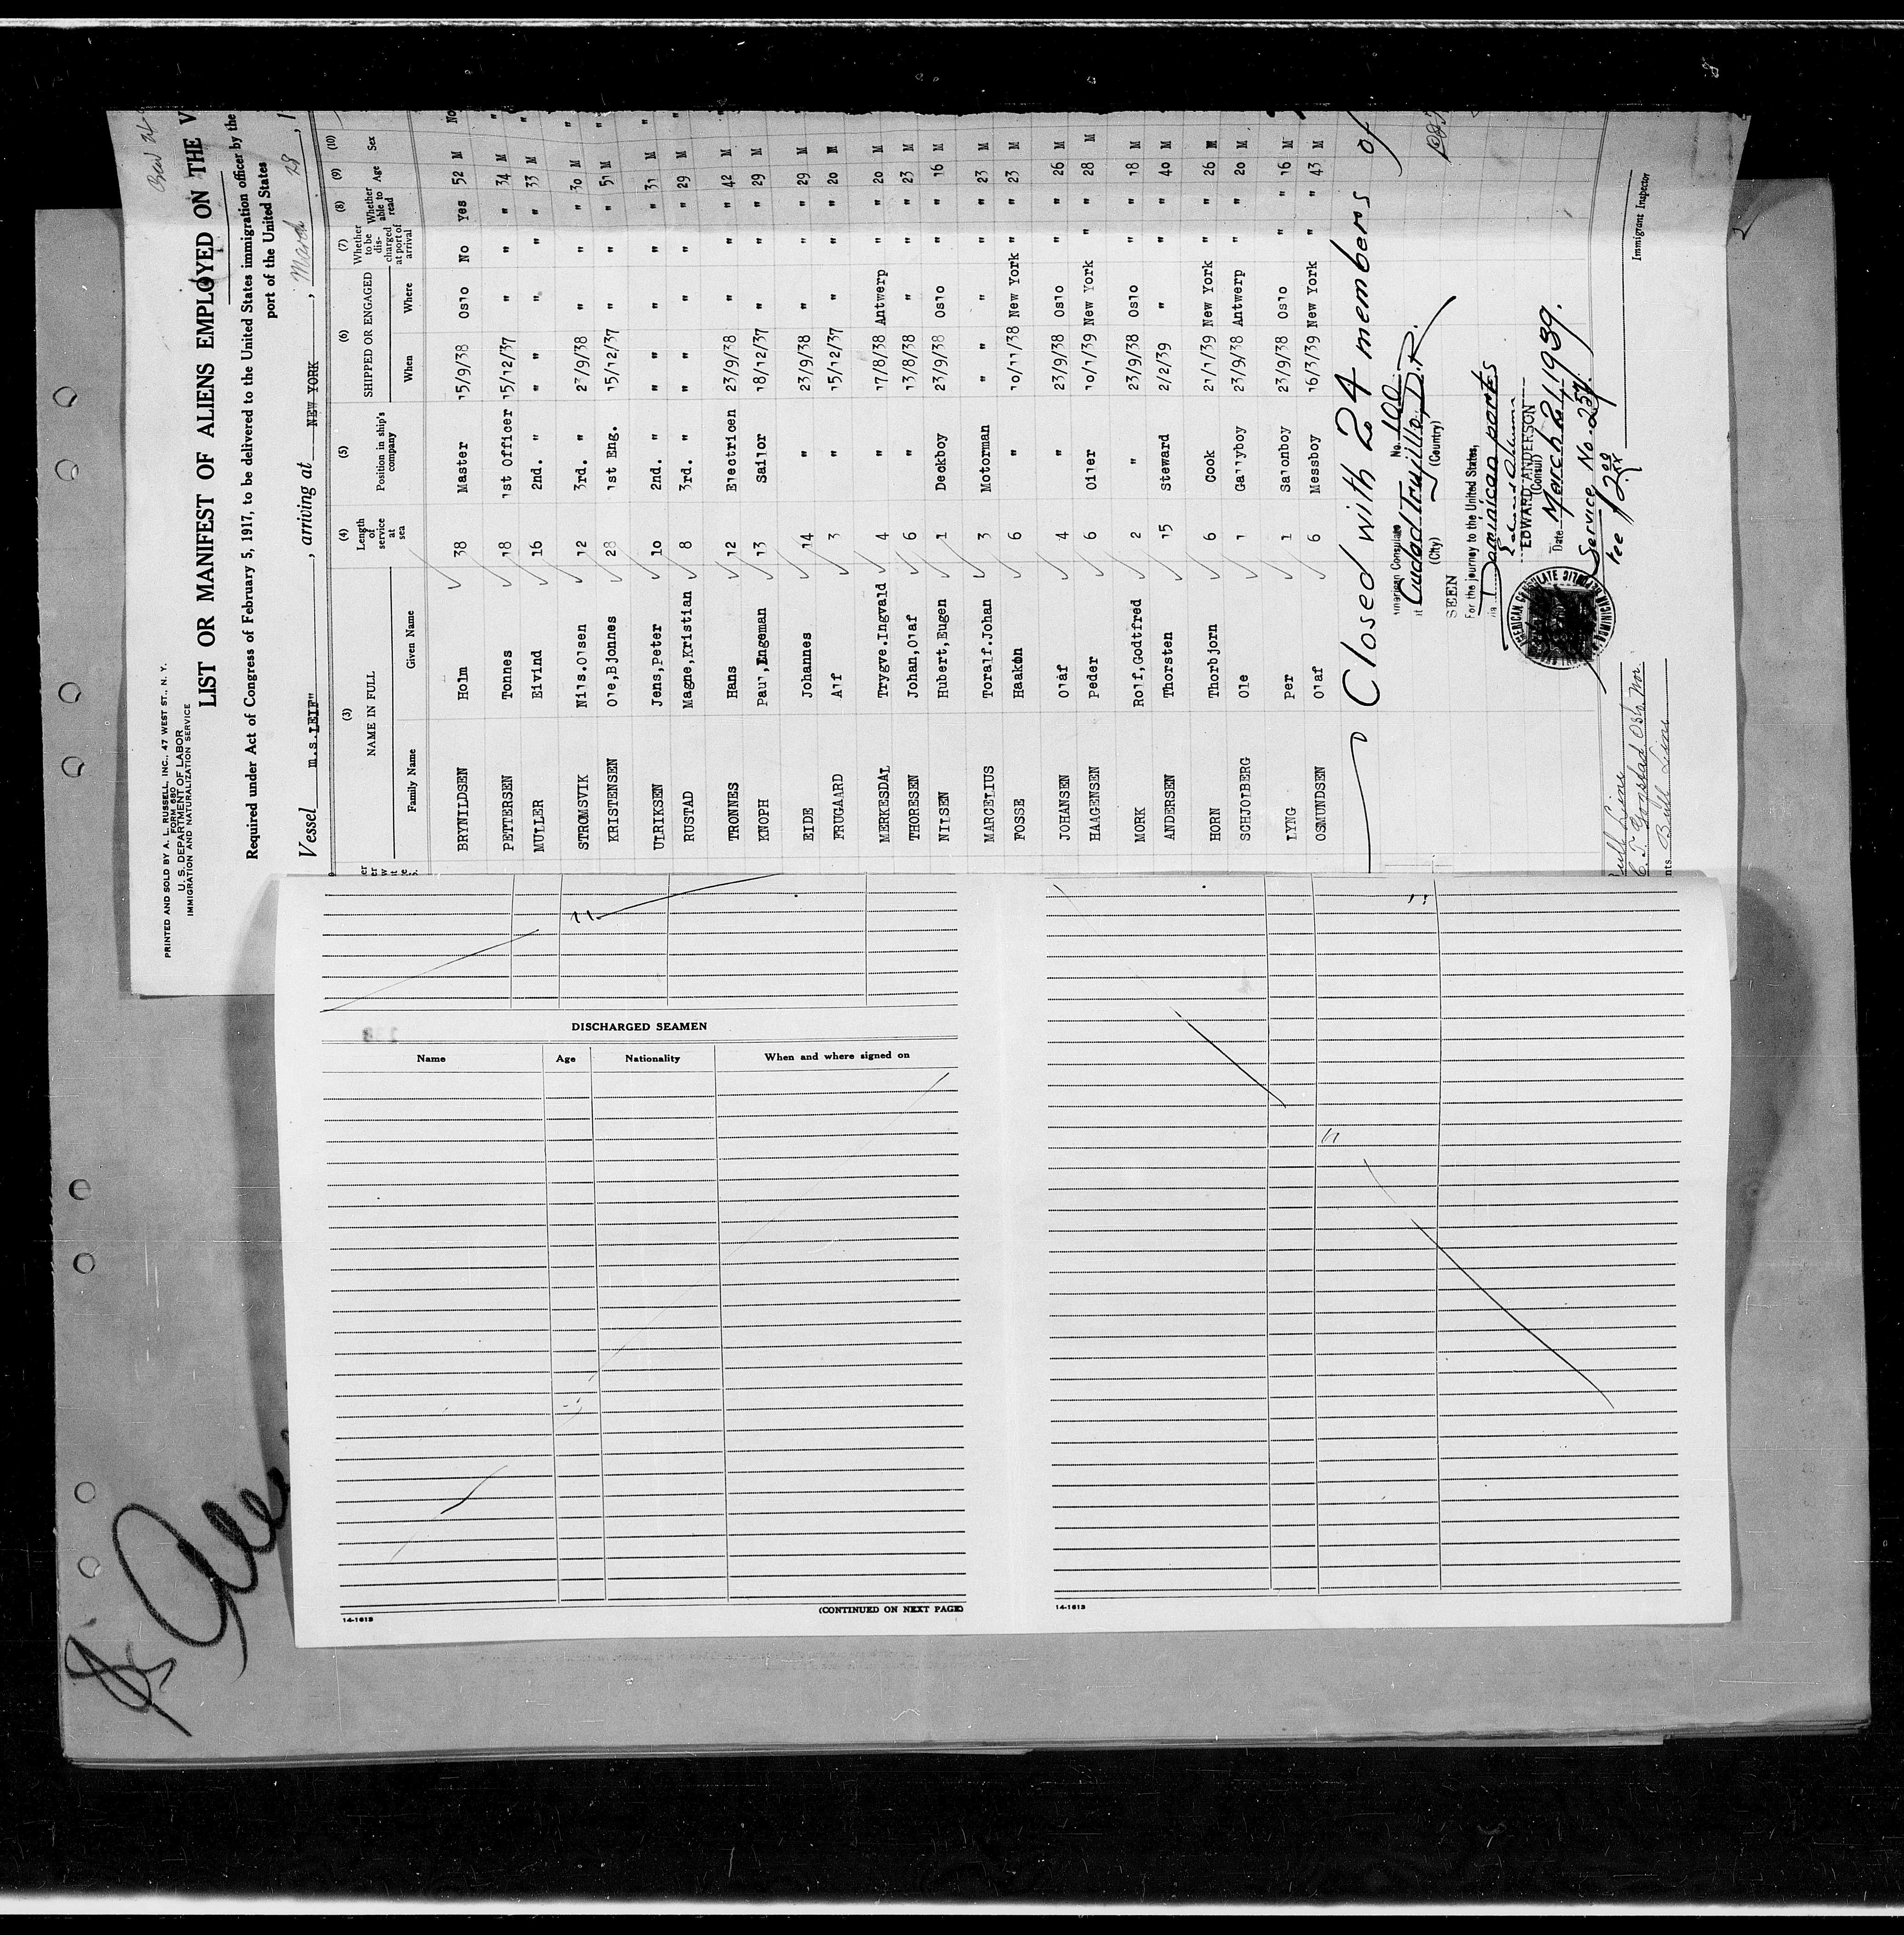 PRINTED AND SOLD BY A. L. RUSSELL, INC., 47 WEST ST., N. Y.
FORM 680
U. S. DEPARTMENT OF LABOR
IMMIGRATION AND NATURALIZATION SERVICE
LIST OR MANIFEST OF ALIENS EMPLOYED ON THE V
Required under Act of Congress of February 5, 1917, to be delivered to the United States immigration officer by the
port of the United States
Vessel m.s.LEIF" , arriving at NEW YORK , March 28, 1
(3) (4) (5) (6) (7) (8) (9) (10)
NAME IN FULL Length of service at sea Position in ship's company SHIPPED OR ENGAGED Whether to be discharged at port of arrival Whether able to read Age Sex
Family Name Given Name When Where
BRYNILDSEN Holm 38 Master 15/9/38 Oslo No Yes 52 M No
PETTERSEN Tonnes 18 1st Officer 15/12/37 " " " 34 M "
MULLER Eivind 16 2nd. " " " " " " 33 M "
STROMSVIK Nils.Olsen 12 3rd. " 23/9/38 " " " 30 M "
KRISTENSEN Ole,Bjonnes 28 1st Eng. 15/12/37 " " " 51 M "
ULRIKSEN Jens,Peter 10 2nd. " " " " " 31 M "
RUSTAD Magne,Kristian 8 3rd. " " " " " 29 M "
TRONNES Hans 12 Electricen 23/9/38 " " " 42 M "
KNOPH Paul,Engeman 13 Sailor 18/12/37 " " " 29 M "
EIDE Johannes 14 " 23/9/38 " " " 29 M "
FRUGAARD Alf 3 " 15/12/37 " " " 20 M "
MERKESDAL Trygve.Ingvald 4 " 17/8/38 Antwerp " " 20 M "
THORESEN Johan,Olaf 6 " 13/8/38 " " " 23 M "
NILSEN Hubert,Eugen 1 Deckboy 23/9/38 Oslo " " 16 M "
MARCELIUS Toralf.Johan 3 Motorman " " " " 23 M "
FOSSE Haakon 6 " 10/11/38 New York " " 23 M "
JOHANSEN Olaf 4 " 23/9/38 Oslo " " 26 M "
HAAGENSEN Peder 6 Oiler 10/1/39 New York " " 28 M "
MORK Rolf,Godtfred 2 " 23/9/38 Oslo " " 18 M "
ANDERSEN Thorsten 15 Steward 2/2/39 " " " 40 M "
HORN Thorbjorn 6 Cook 21/1/39 New York " " 26 M "
SCHJOLBERG Ole 1 Gallyboy 23/9/38 Antwerp " " 20 M "
LYNG Per 1 Salonboy 23/9/38 Oslo " " 16 M
OSMUNDSEN Olaf 6 Messboy 16/3/39 New York " " 43 M
Closed with 24 members of
American Consulate No. 100
Ciudad Trujillo, D.R.
(City) (Country)
SEEN
For the journey to the United States,
via Dominican ports
EDWARD ANDERSON
(Consul)
Date March 21 1939.
Service No. 257.
Fee $2.00
AMERICAN CONSULATE
DOMINICAN REPUBLIC
Bull Line
Oslo Nor.
Bull Line
Immigrant Inspector
DISCHARGED SEAMEN
Name Age Nationality When and where signed on
(CONTINUED ON NEXT PAGE)
14-1613
14-1613